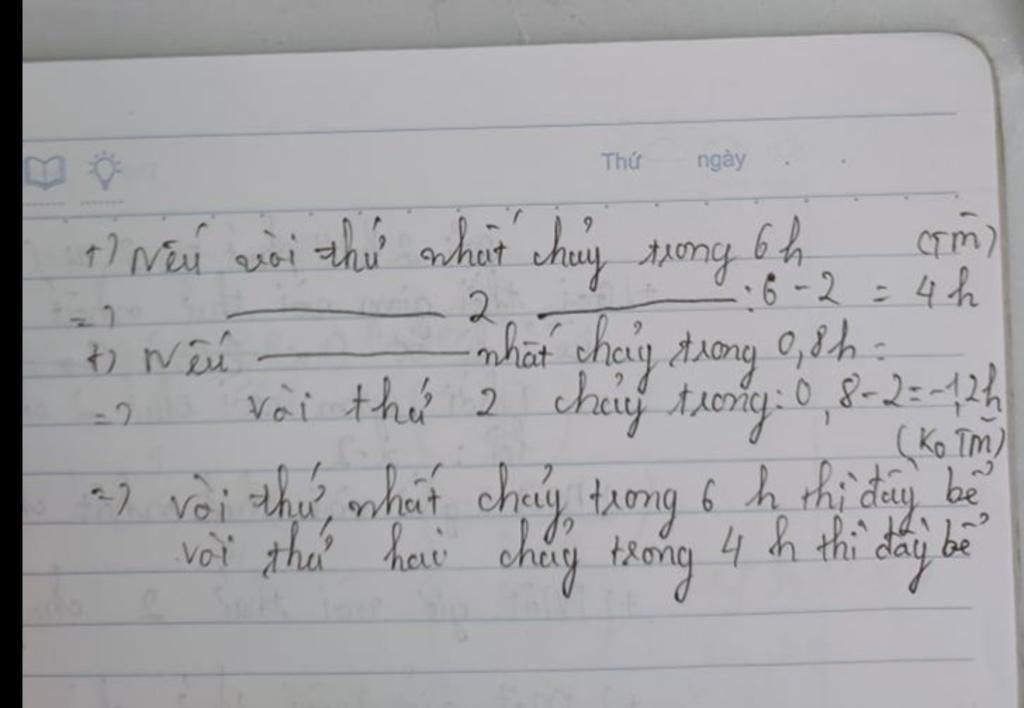 Thứ ngày
+) Nếu vòi thứ nhất chảy trong 6h (TM)
=> ———— 2 ————: 6 - 2 = 4h
+) Nếu ———— nhất chảy trong 0,8h =
=> vòi thứ 2 chảy trong: 0,8 - 2 = -1,2h
(Ko TM)
=> vòi thứ nhất chảy trong 6 h thì đầy bể
vòi thứ hai chảy trong 4 h thì đầy bể